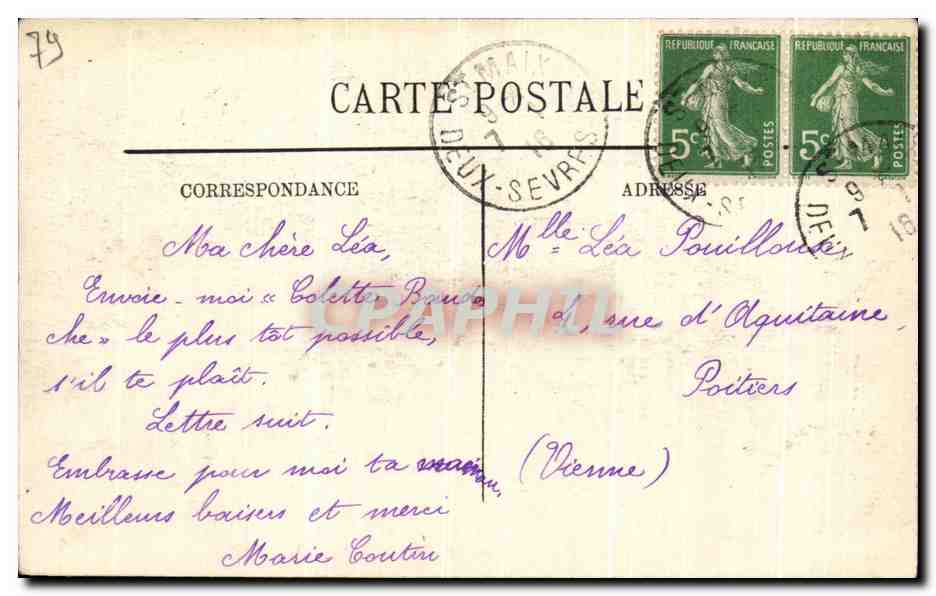 79
CARTE POSTALE
ST MAIX
9
7 16
DEUX-SEVRES
REPUBLIQUE FRANÇAISE
5c POSTES
REPUBLIQUE FRANÇAISE
5c POSTES
CORRESPONDANCE
Ma chère Léa,
Envoie-moi « Colette Baudo
che » le plus tôt possible,
s'il te plaît.
Lettre suit.
Embrasse pour moi ta
Meilleurs baisers et merci
Marie Coutin
ADRESSE
Mlle Léa
rue d'Aquitaine,
Poitiers
(Vienne)
CPAPHIL